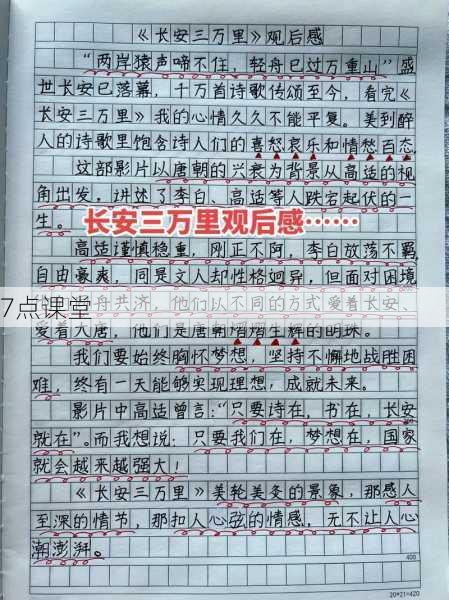 《长安三万里》观后感
“两岸猿声啼不住，轻舟已过万重山”盛
世长安已落幕，千万首诗歌传颂至今，看完《
长安三万里》我的心情久久不能平复。美到醉
人的诗歌里饱含诗人们的喜怒哀乐和情愁百态
这部影片以唐朝的兴衰为背景从高适的视
角出发，讲述了李白、高适等人跌宕起伏的一
生。
长安三万里观后感……
高适谨慎稳重、刚正不阿，李白放荡不羁
自由豪爽，同是文人却性格迥异，但面对困境
7点课堂
舟共济，他们以不同的方式爱着长安、
爱着大唐，他们是唐朝熠熠生辉的明珠。
我们要始终胸怀梦想，坚持不懈地战胜困
难，终有一天能够实现理想，成就未来。
影片中高适曾言：“只要诗在，书在，长安
就在”。而我想说：只要我们在，梦想在，国家
就会越来越强大！
《长安三万里》美轮美奂的景象，那感人
至深的情节，那扣人心弦的情感，无不让人心
潮澎湃。
400
20*21=420